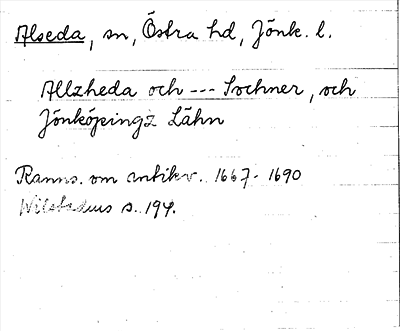 Alseda, sn, Östra hd, Jönk. l.
Allzheda och --- Sochner, och
Jönköpingz Lähn
Ranns. om antikv. 1667-1690
Wilstadius s. 194.